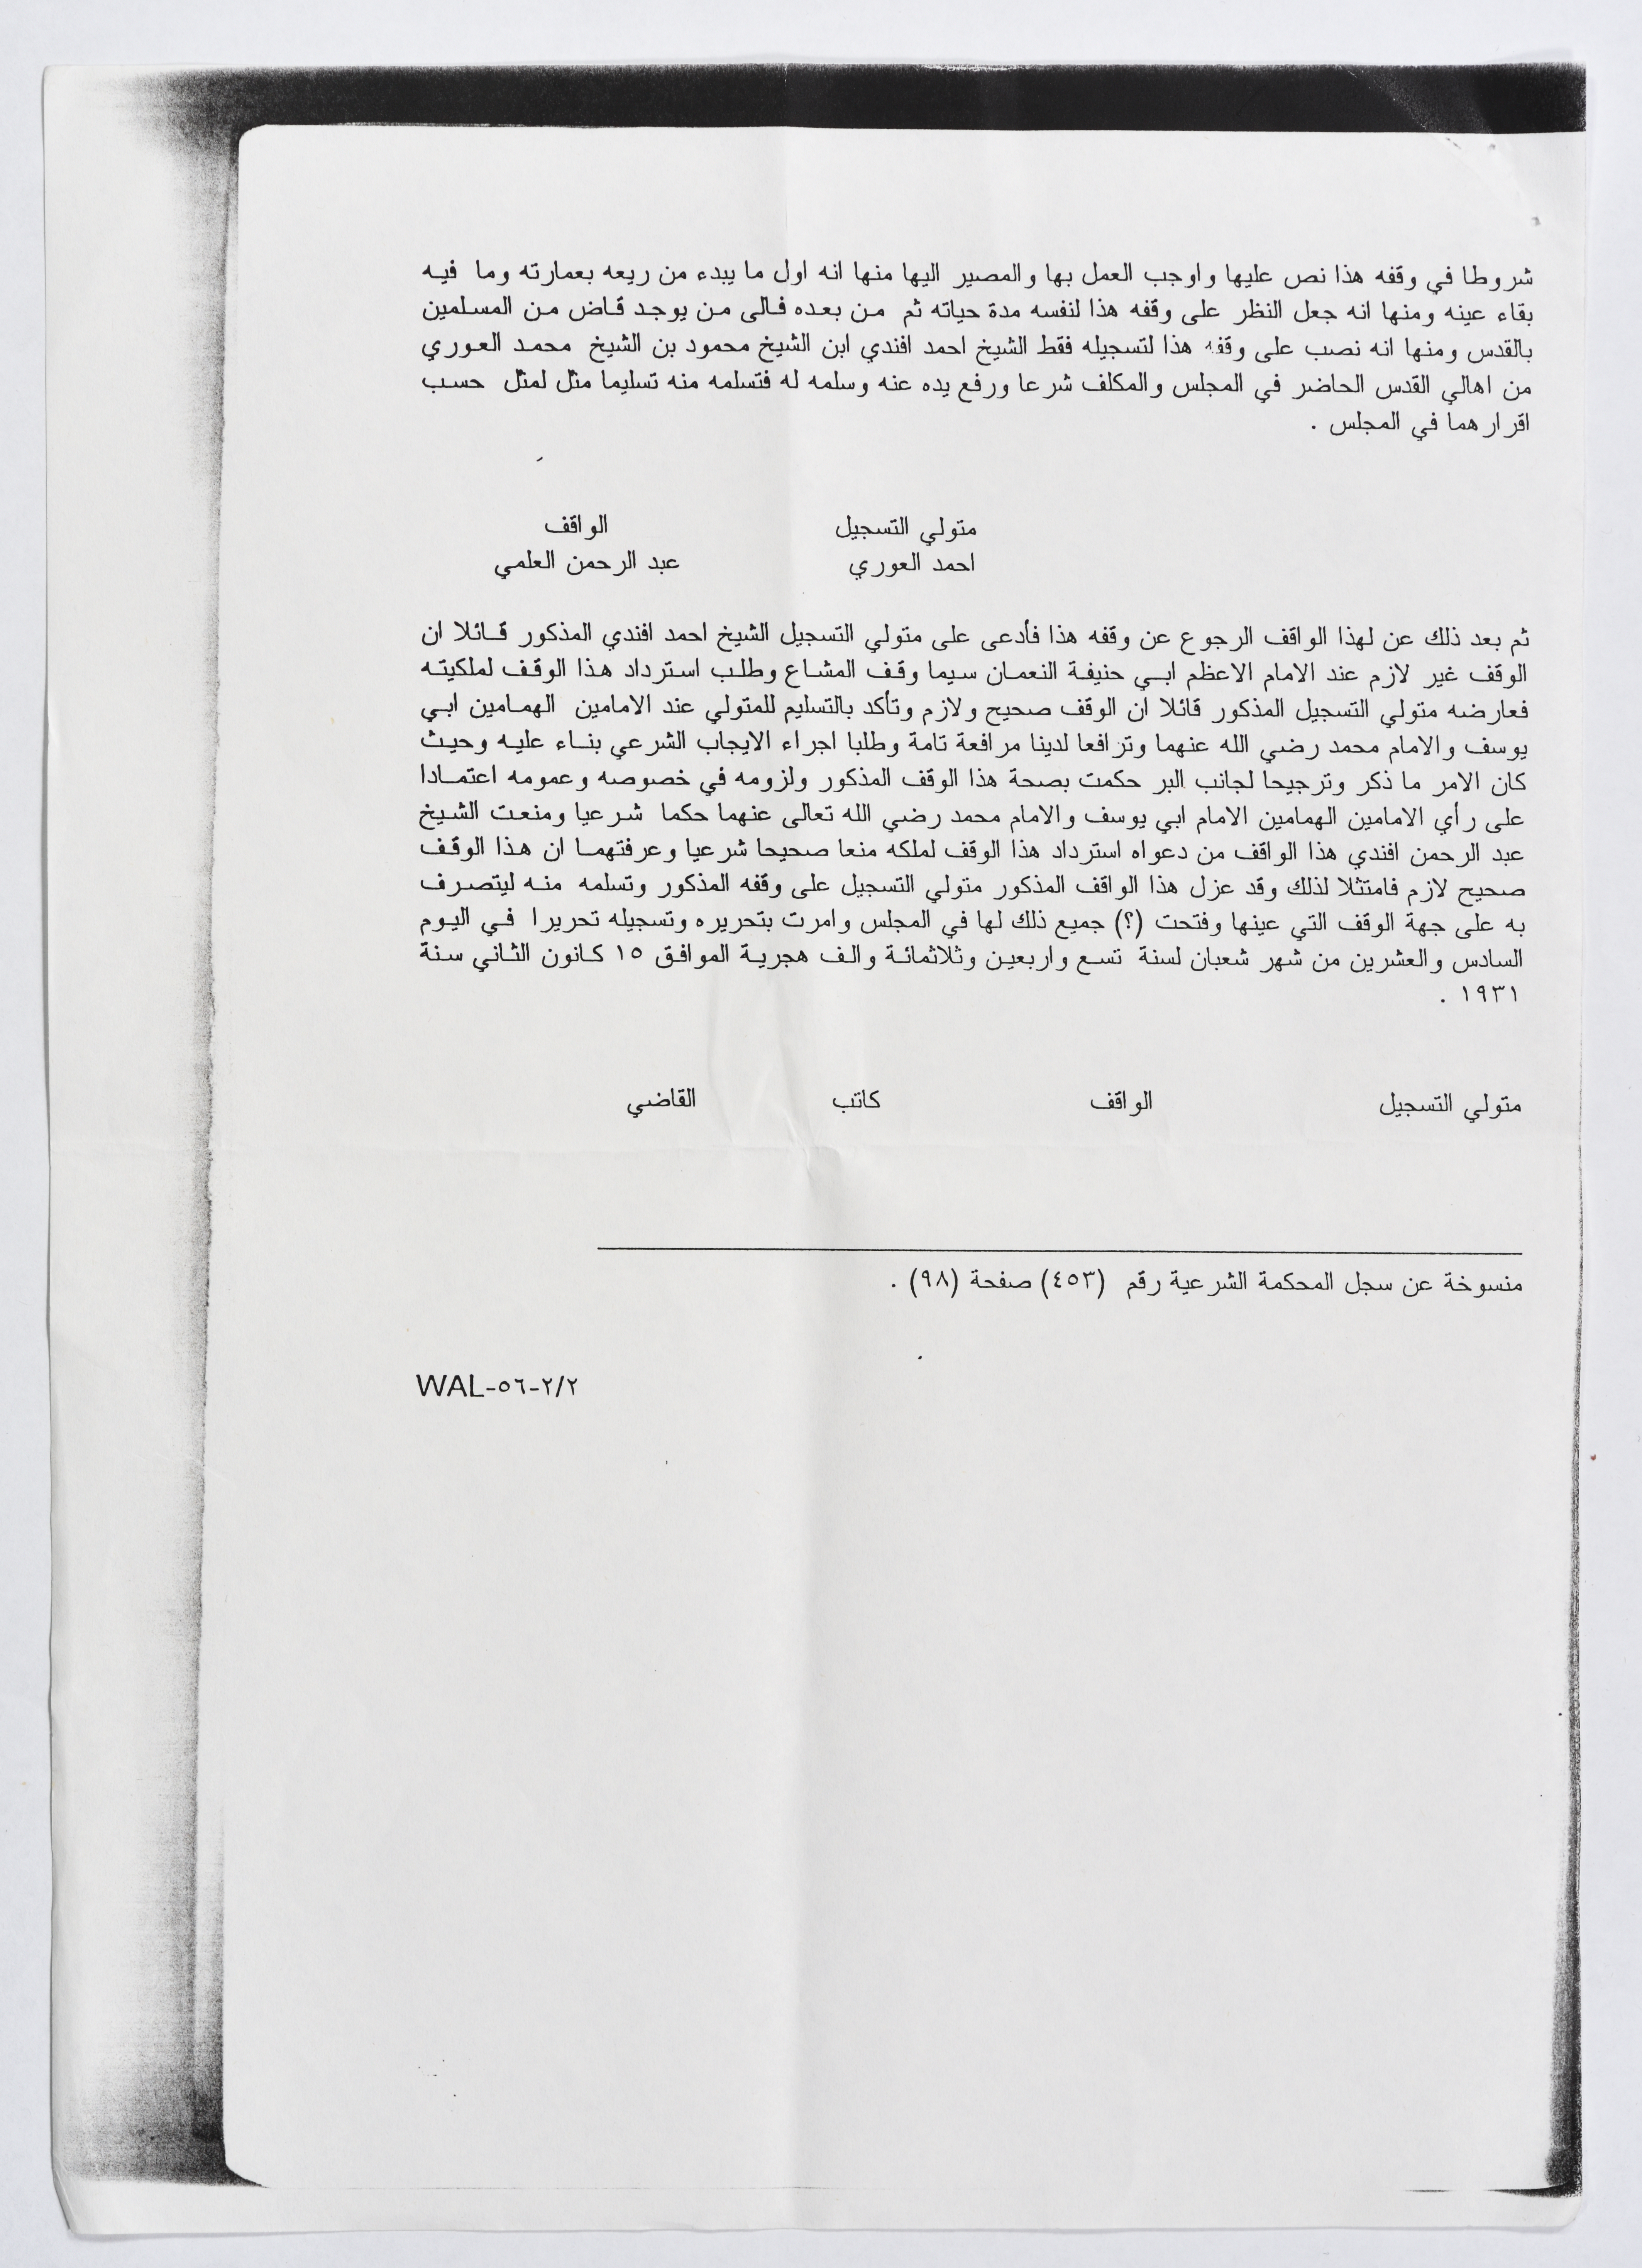 شروطا في وقفه هذا نص عليها واوجب العمل بها والمصير اليها منها انه اول ما يبدء من ريعه بعمارته وما فيه
بقاء عينه ومنها انه جعل النظر على وقفه هذا لنفسه مدة حياته ثم من بعده فالى من يوجد قاض من المسلمين
بالقدس ومنها انه نصب على وقفه هذا لتسجيله فقط الشيخ احمد افندي ابن الشيخ محمود بن الشيخ محمد العوري
من اهالي القدس الحاضر في المجلس والمكلف شرعا ورفع يده عنه وسلمه له فتسلمه منه تسليما مثل لمثل حسب
اقرارهما في المجلس .
متولي التسجيل الواقف
احمد العوري عبد الرحمن العلمي
ثم بعد ذلك عن لهذا الواقف الرجوع عن وقفه هذا فأدعى على متولي التسجيل الشيخ احمد افندي المذكور قائلا ان
الوقف غير لازم عند الامام الاعظم ابي حنيفة النعمان سيما وقف المشاع وطلب استرداد هذا الوقف لملكيته
فعارضه متولي التسجيل المذكور قائلا ان الوقف صحيح ولازم وتأكد بالتسليم للمتولي عند الامامين الهمامين ابي
يوسف والامام محمد رضي الله عنهما وترافعا لدينا مرافعة تامة وطلبا اجراء الايجاب الشرعي بناء عليه وحيث
كان الامر ما ذكر وترجيحا لجانب البر حكمت بصحة هذا الوقف المذكور ولزومه في خصوصه وعمومه اعتمادا
على رأي الامامين الهمامين الامام ابي يوسف والامام محمد رضي الله تعالى عنهما حكما شرعيا ومنعت الشيخ
عبد الرحمن افندي هذا الواقف من دعواه استرداد هذا الوقف لملكه منعا صحيحا شرعيا وعرفتهما ان هذا الوقف
صحيح لازم فامتثلا لذلك وقد عزل هذا الواقف المذكور متولي التسجيل على وقفه المذكور وتسلمه منه ليتصرف
به على جهة الوقف التي عينها وفتحت (؟) جميع ذلك لها في المجلس وامرت بتحريره وتسجيله تحريرا في اليوم
السادس والعشرين من شهر شعبان لسنة تسع واربعين وثلاثمائة والف هجرية الموافق ١٥ كانون الثاني سنة
١٩٣١ .
متولي التسجيل الواقف كاتب القاضي
منسوخة عن سجل المحكمة الشرعية رقم (٤٥٣) صفحة (٩٨) .
WAL-٥٦-٢/٢